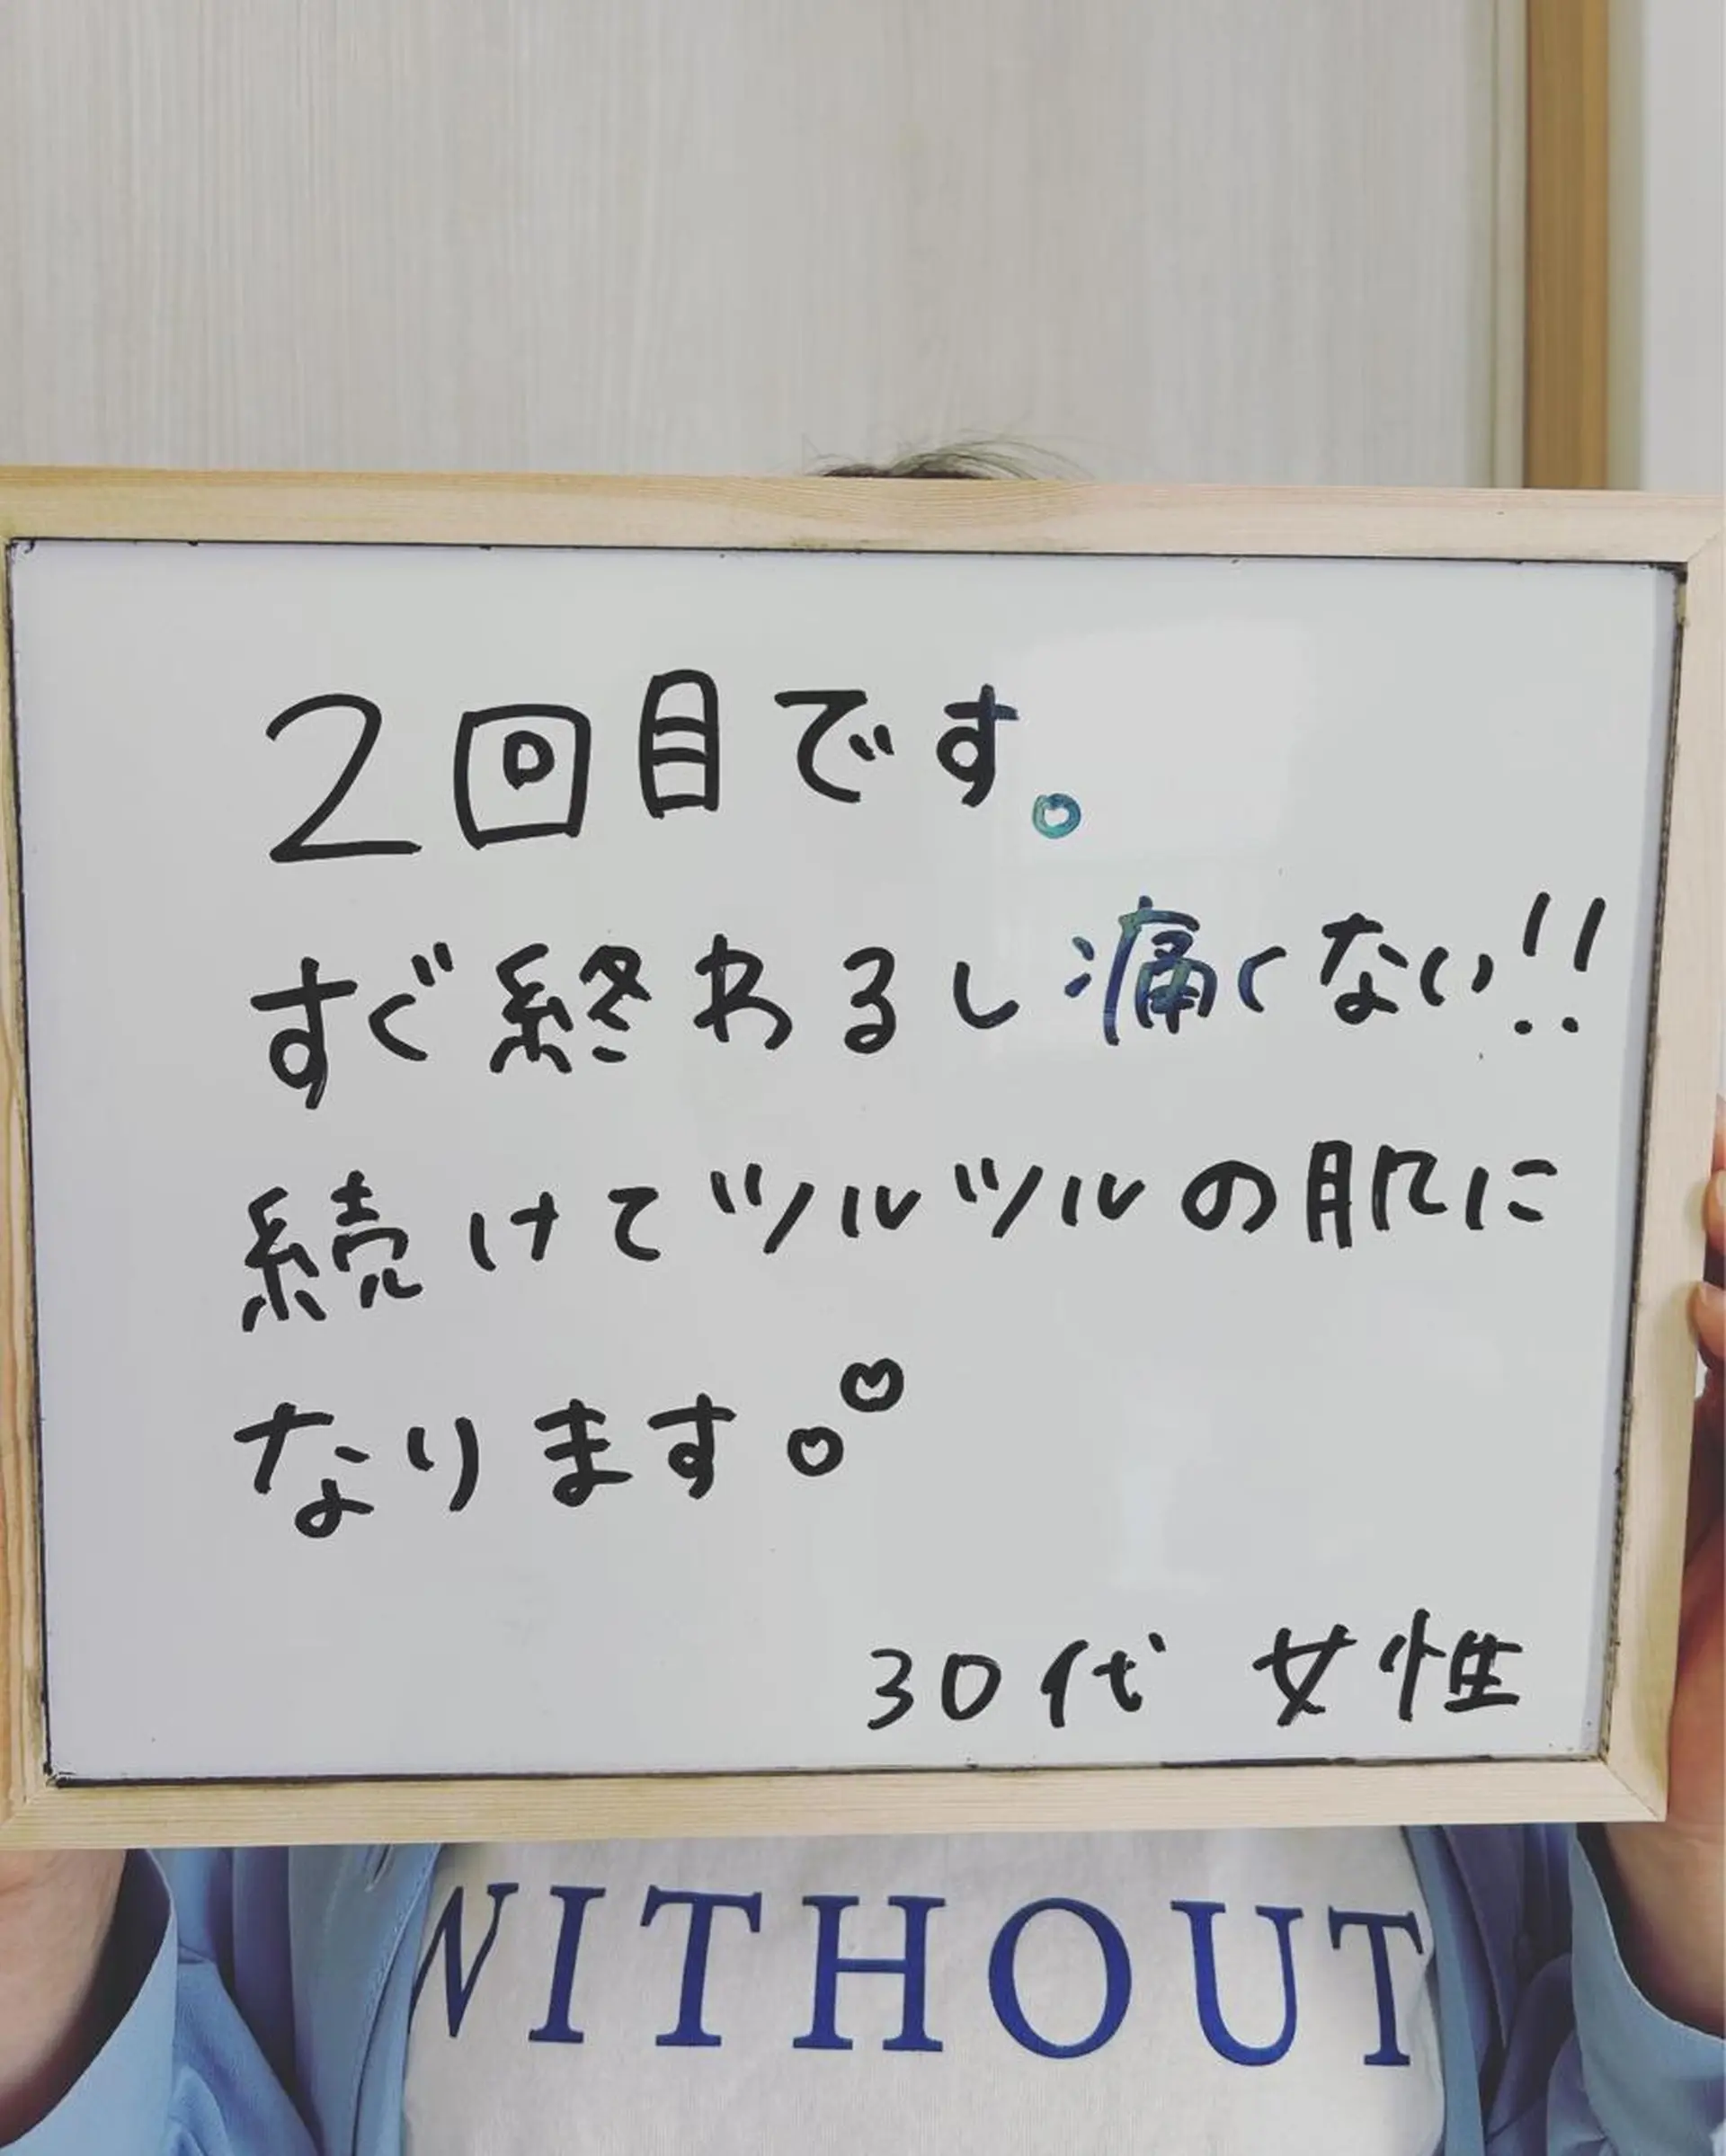 2回目です。
すぐ終わるし痛くない!!
続けてツルツルの肌に
なります。
30代 女性
WITHOUT